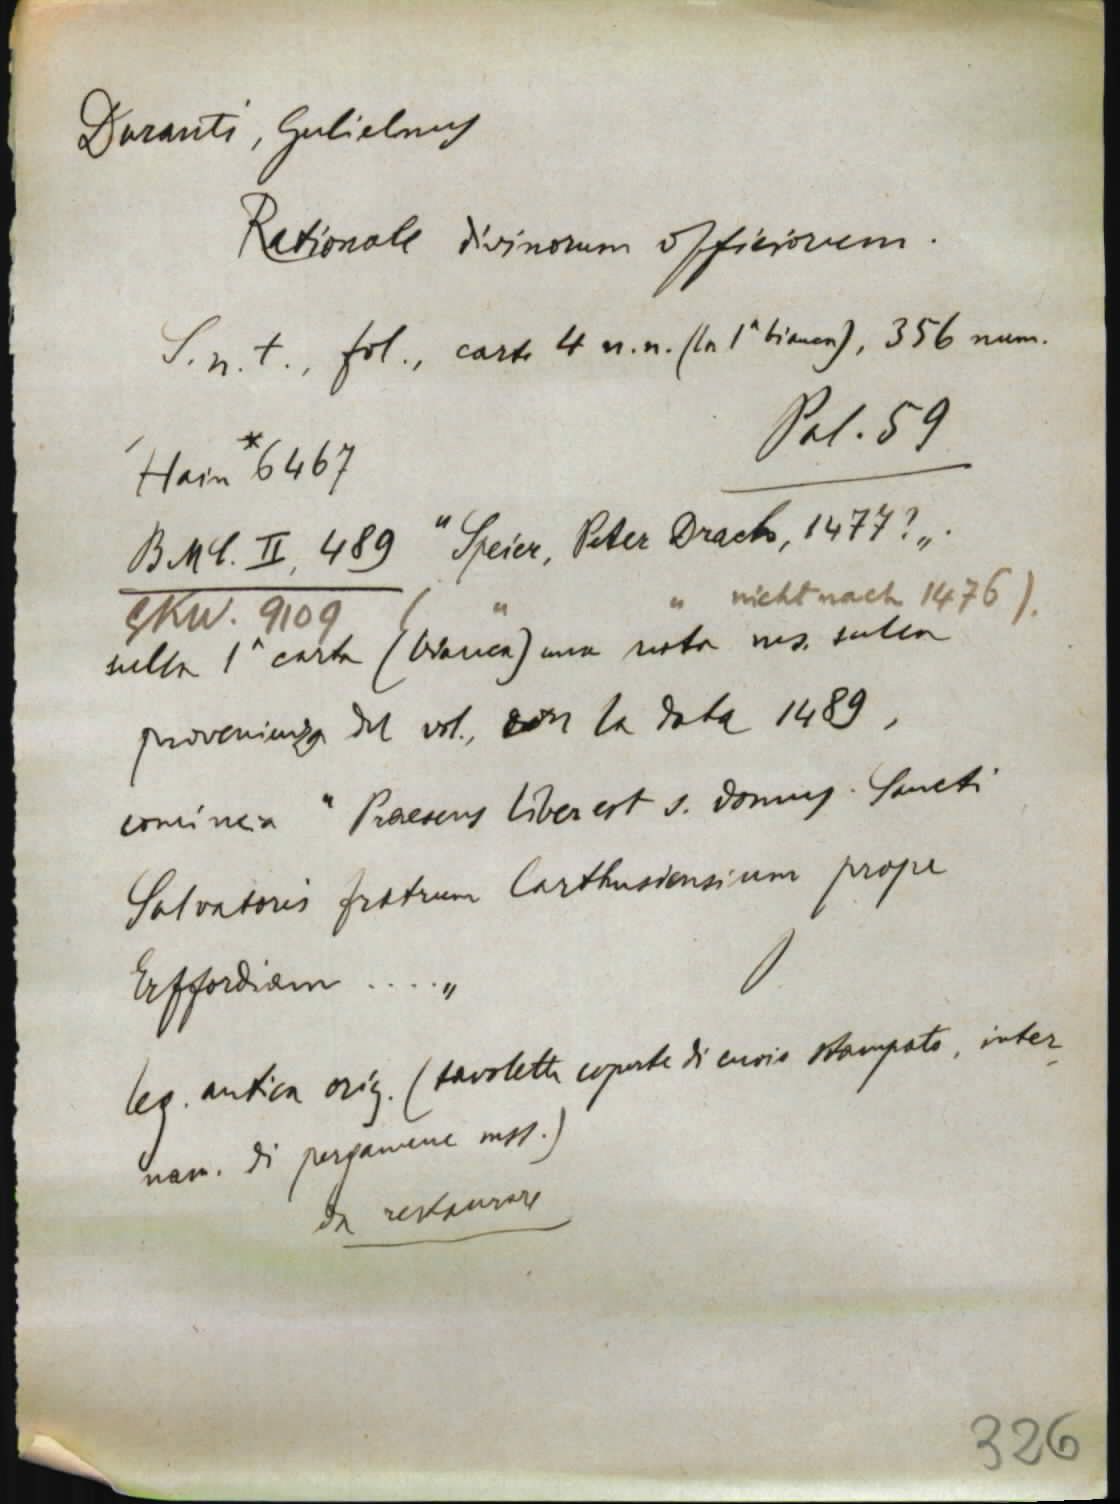 Duranti, Gulielmus
Rationale divinorum officiorum.
S. n. t., fol., carte 4 n. n. (la 1ª bianca), 356 num.
Pal. 59
Hain *6467
B.M.C. II, 489 "Speier, Peter Drach, 1477?„.
GKW. 9109 ( " " nicht nach 1476).
sulla 1ª carta (bianca) una nota ms. sulla
provenienza del vol., con la data 1489,
comincia "Praesens liber est s. domus. Sancti
Salvatoris fratrum Carthusiensium prope
Erffordiam ....„
leg. antica orig. (tavolette coperte di cuoio stampato, inter-
nam. di pergamene mss.)
da restaurare
326